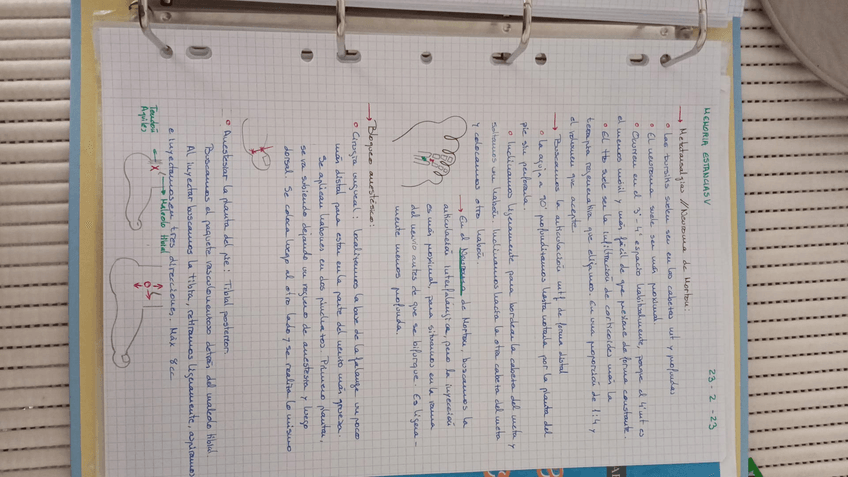 MEMORIA ESTANCIAS V
23-2-23
→ Metatarsalgias // Neuroma de Morton
○ Las bursitis suelen ser en las cabezas mtt y profundas
○ El neuroma suele ser más proximal
○ Ocurren en el 3º-4º espacio habitualmente, porque el 4º mtt es
el menos móvil y más fácil de que presione de forma constante
○ El tto suele ser la infiltración de corticoides más la
terapia regenerativa que elijamos. En una proporción de 1:4 y
el volumen que acepte.
→ Buscamos la articulación mtf de forma distal
○ La aguja a 90° profundizamos hasta notarla por la planta del
pie sin perforarla.
○ Inclinamos ligeramente para bordear la cabeza del meta y
soltamos un habón. Inclinamos hacia la otra cabeza del meta
y colocamos otro habón.
→ En el Neuroma de Morton buscamos la
articulación interfalángica, pero la inyección
es más proximal, para situarnos en la rama
del nervio antes de que se bifurque. Es ligera-
mente menos profunda.
→ Bloqueo anestésico:
○ Cirugía ungueal: localizamos la base de la falange un poco
más distal para estar en la parte del nervio más gruesa.
Se aplican habones en dos pinchazos. Primero plantar,
se va subiendo dejando un reguero de anestesia y luego
dorsal. Se coloca luego al otro lado y se realiza lo mismo
○ Anestesiar la planta del pie: Tibial posterior.
Buscamos el paquete vasculonervioso detrás del maleolo tibial.
Al inyectar buscamos la tibia, retiramos ligeramente, aspiramos
e inyectamos en tres direcciones. Máx 8cc
Tendón
Aquiles
Maleolo tibial